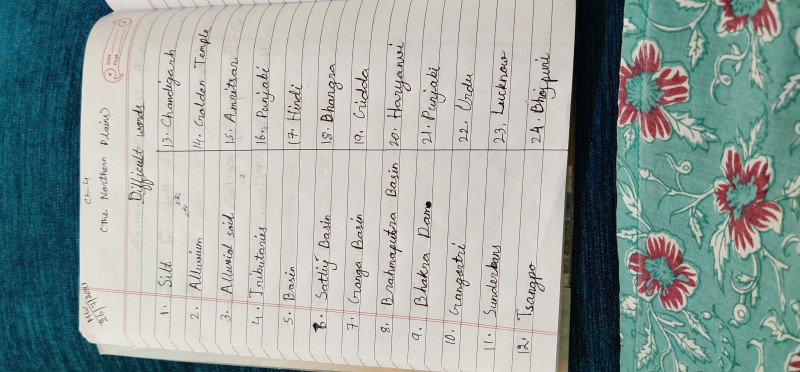 Ch-4
(The Northern Plains)
Difficult words
1. Silt
2. Alluvium
3. Alluvial soil
4. Tributaries
5. Basin
6. Satluj Basin
7. Ganga Basin
8. Brahmaputra Basin
9. Bhakra Dam
10. Gangotri
11. Sunderbans
12. Tsangpo
13. Chandigarh
14. Golden Temple
15. Amritsar
16. Punjabi
17. Hindi
18. Bhangra
19. Gidda
20. Haryanvi
21. Punjabi
22. Urdu
23. Lucknow
24. Bhojpuri